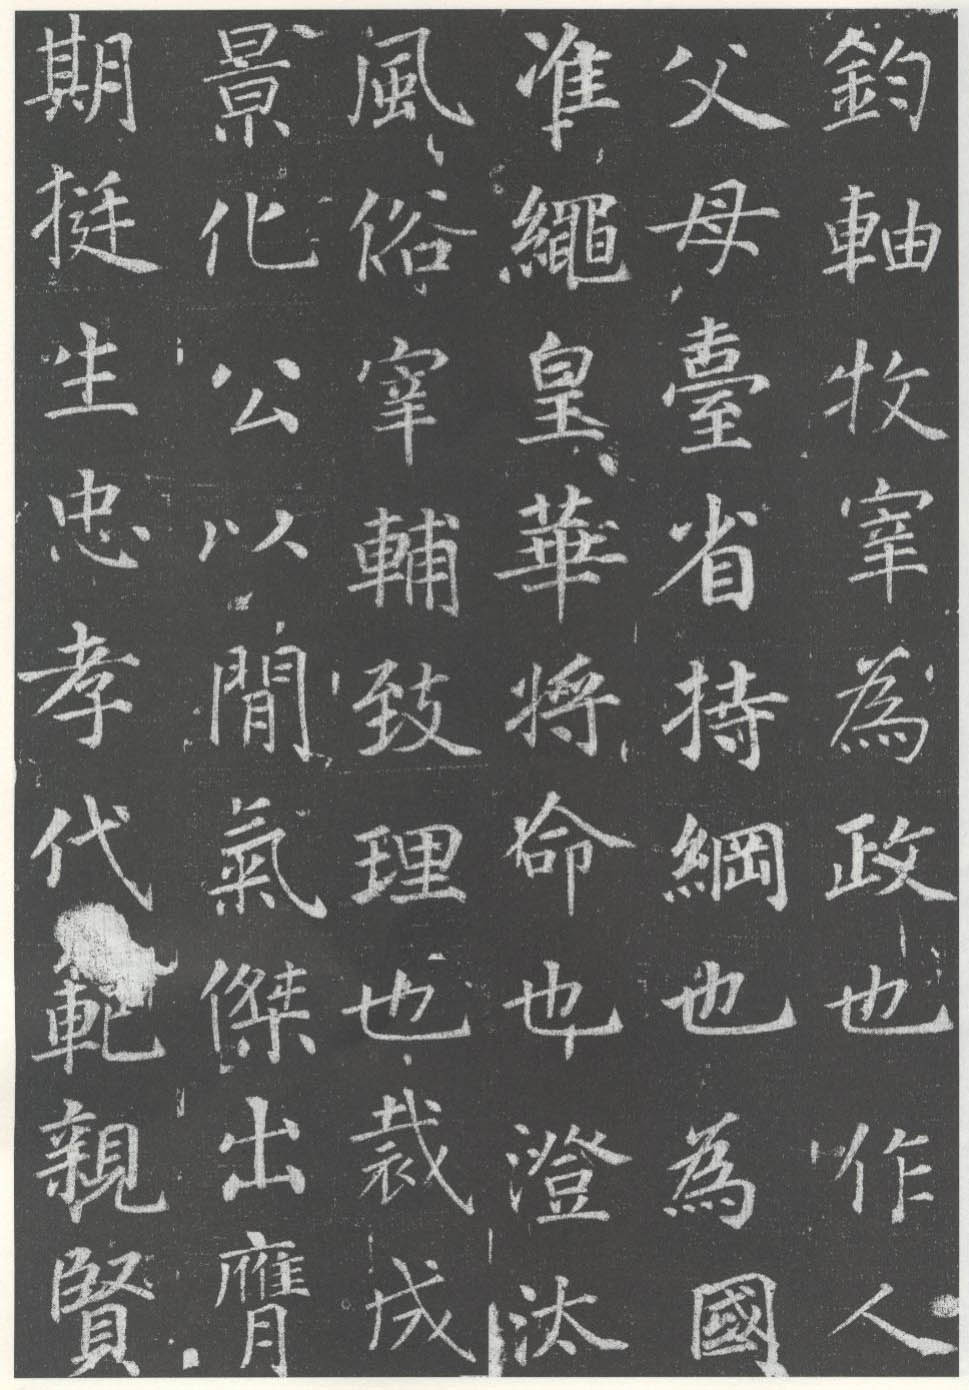 鈞軸牧宰為政也作人
父母臺省持綱也為國
准繩皇華將命也澄汰
風俗宰輔致理也裁成
景化公以閒氣傑出膺
期挺生忠孝代範親賢